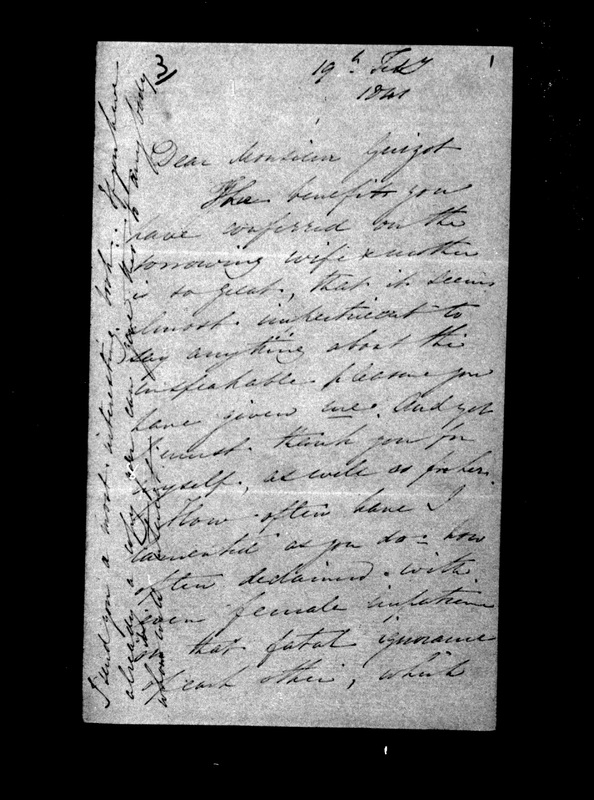 3
19th Feby
1841
1
Dear Monsieur Guizot
The benefits you
have conferred on the
sorrowing wife & mother
is so great, that it seems
almost impertinent to
say anything about the
unspeakable pleasure you
have given me. And yet
I must thank you for
myself, as well as for her.
How often have I
lamented as you do - how
often declaimed with
even female impatience
on that fatal ignorance
of each other, which
I send you a most interesting book. If you have
already a copy you can give this to any body
whom will